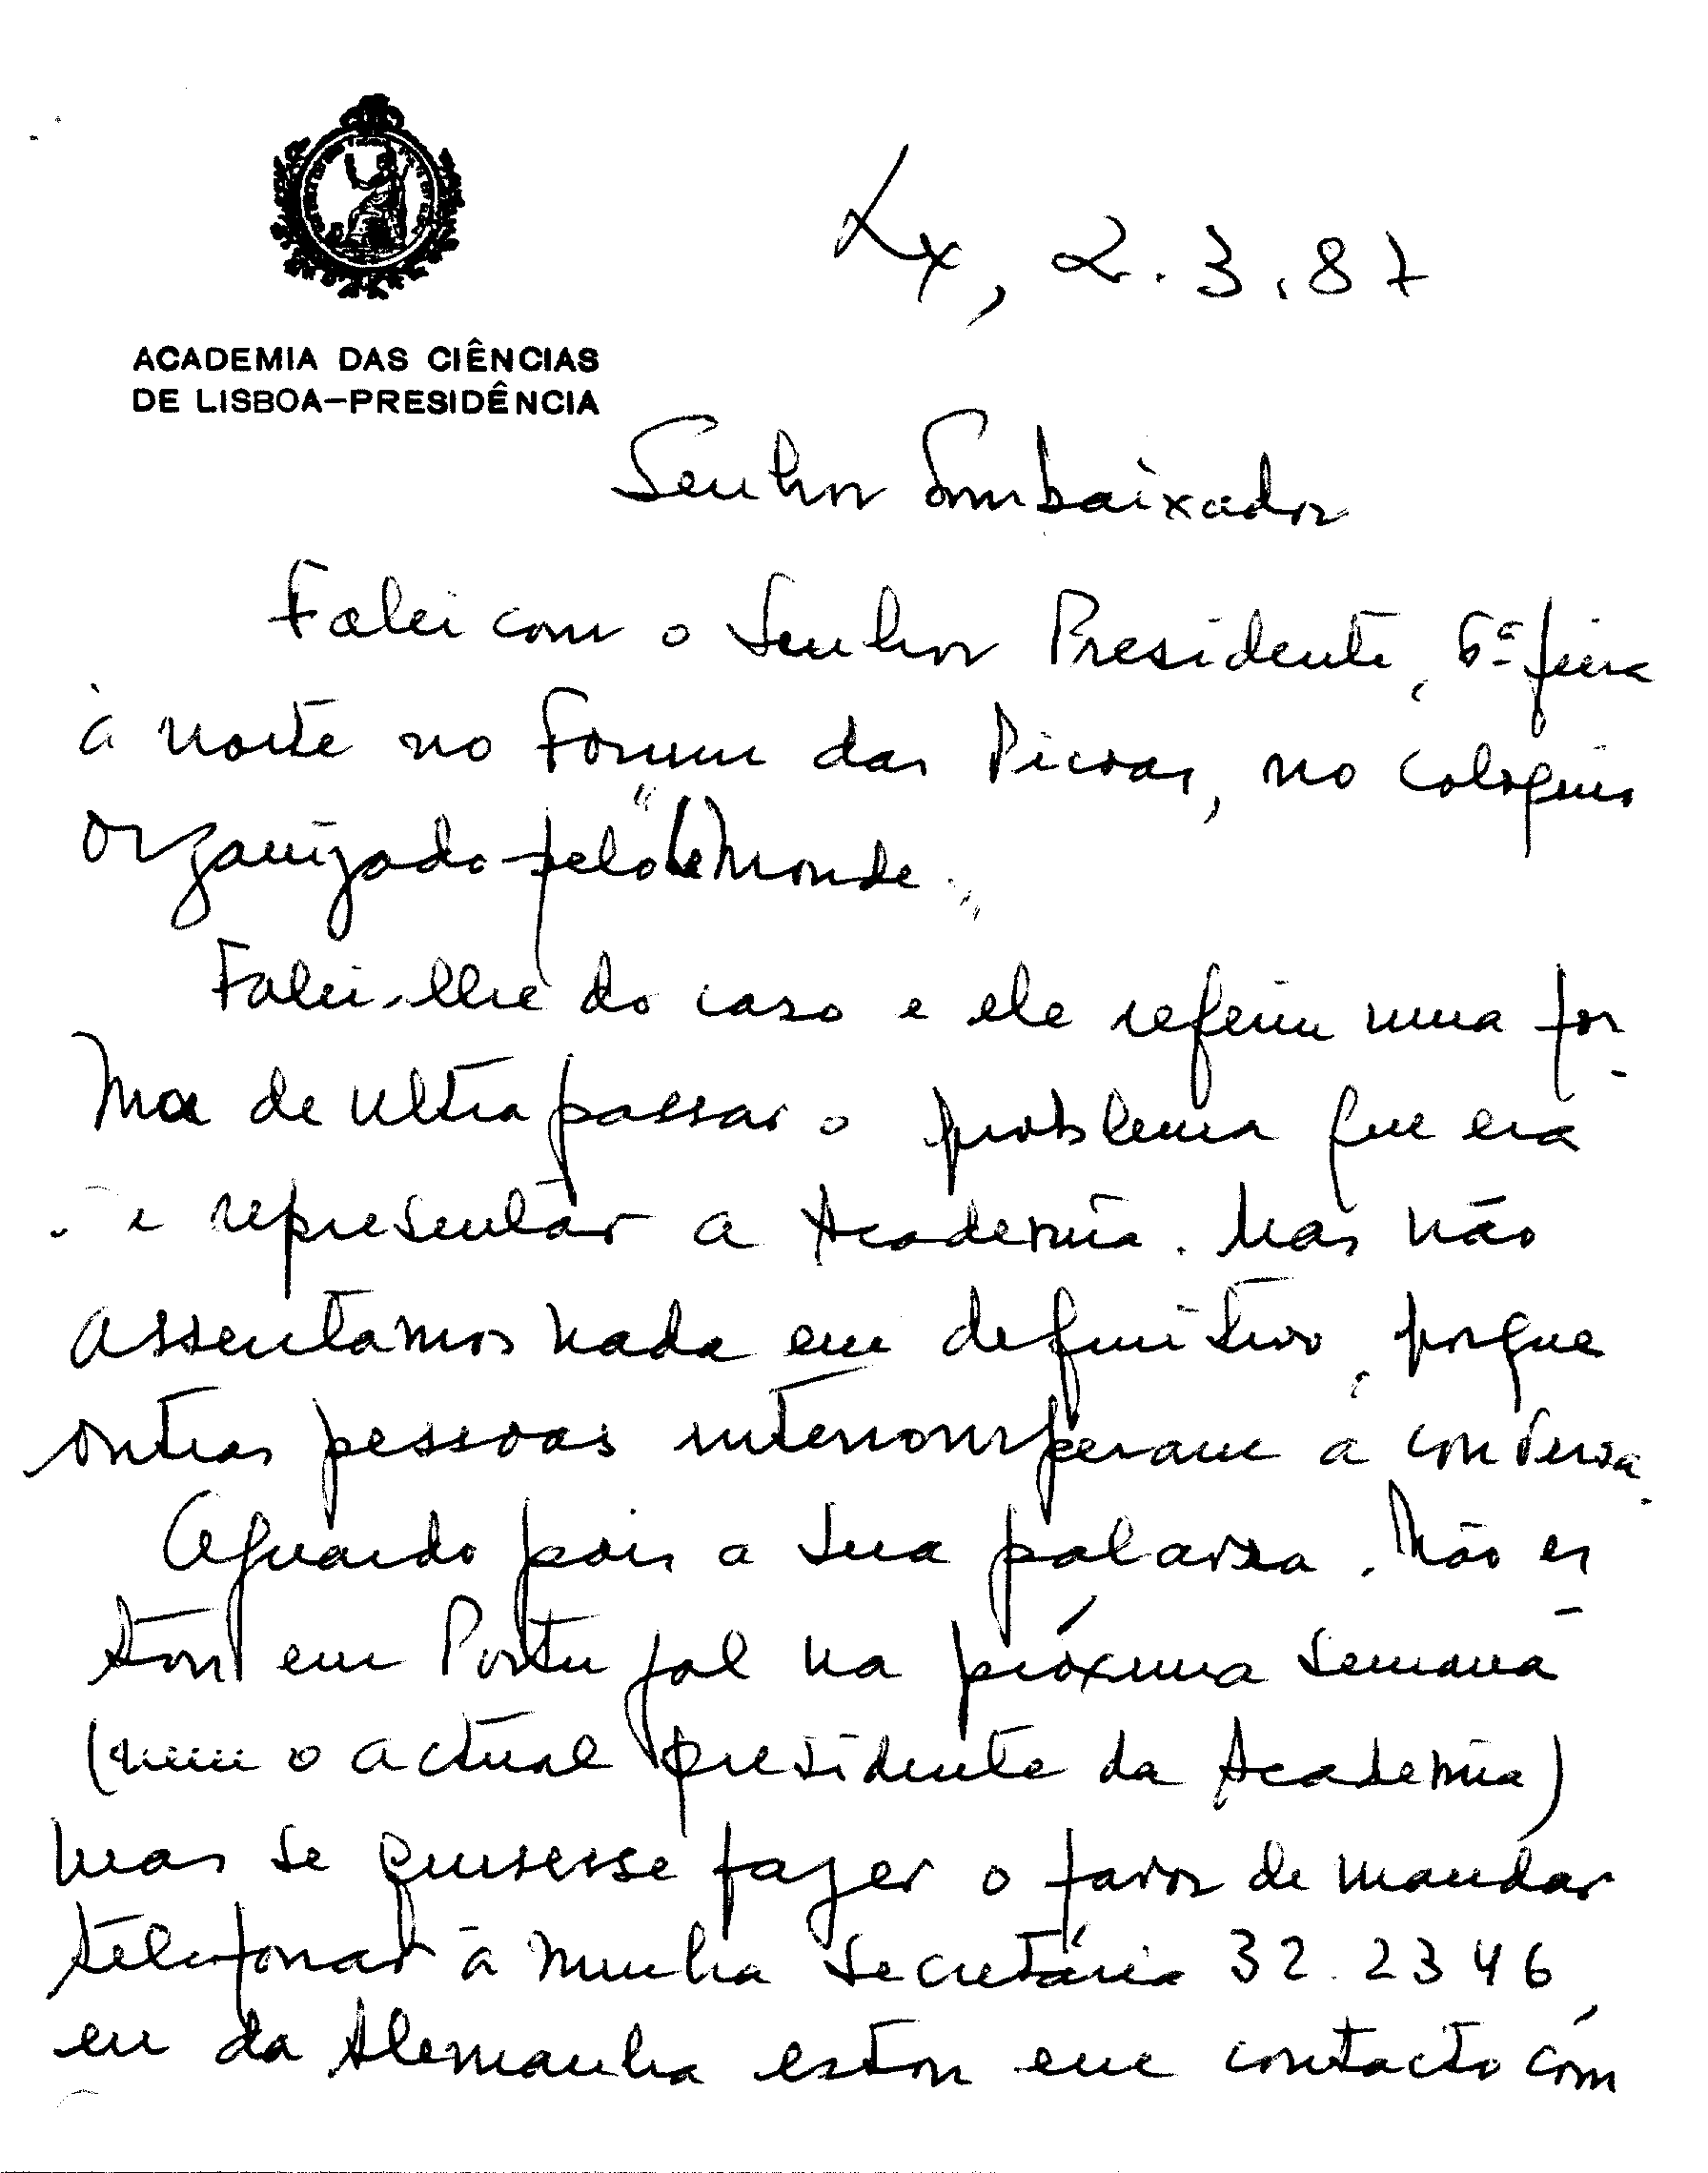 ACADEMIA DAS CIÊNCIAS
DE LISBOA-PRESIDÊNCIA
Lx, 2.3.87
Senhor Embaixador
Falei com o Senhor Presidente, 6ª feira
à noite no Forum das Picoas, no coloquio
organizado pelo "Le Monde".
Falei-lhe do caso e ele referiu uma for-
ma de ultrapassar o problema que era
e representar a Academia. Mas não
assentamos nada em definitivo, porque
outras pessoas interromperam a conversa.
Aguardo pois a sua palavra. Não es-
tou em Portugal na próxima semana
(nem o actual presidente da Academia)
mas se quisesse fazer o favor de mandar
telefonar à minha secretária 32.2346,
eu da Alemanha estou em contacto com